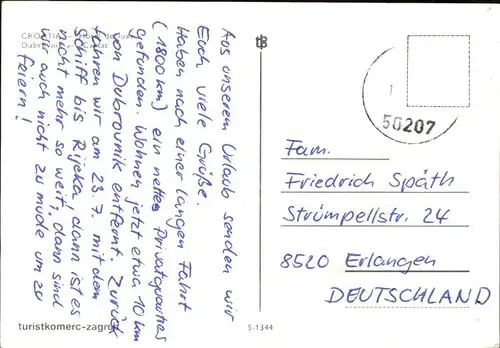 CROATIA
Dubrovnik - Cavtat
Aus unserem Urlaub senden wir
Euch viele Grüße.
Haben nach einer langen Fahrt
(1800 km) ein nettes Privatquartier
gefunden. Wohnen jetzt etwa 10 km
von Dubrovnik entfernt. Zurück
fahren wir am 23.7. mit dem
Schiff bis Rijeka, dann ist es
nicht mehr so weit, dann sind
wir auch nicht zu müde um zu
feiern!
turistkomerc-zagreb
S-1344
tb
50207
Fam.
Friedrich Späth
Strümpellstr. 24
8520 Erlangen
DEUTSCHLAND